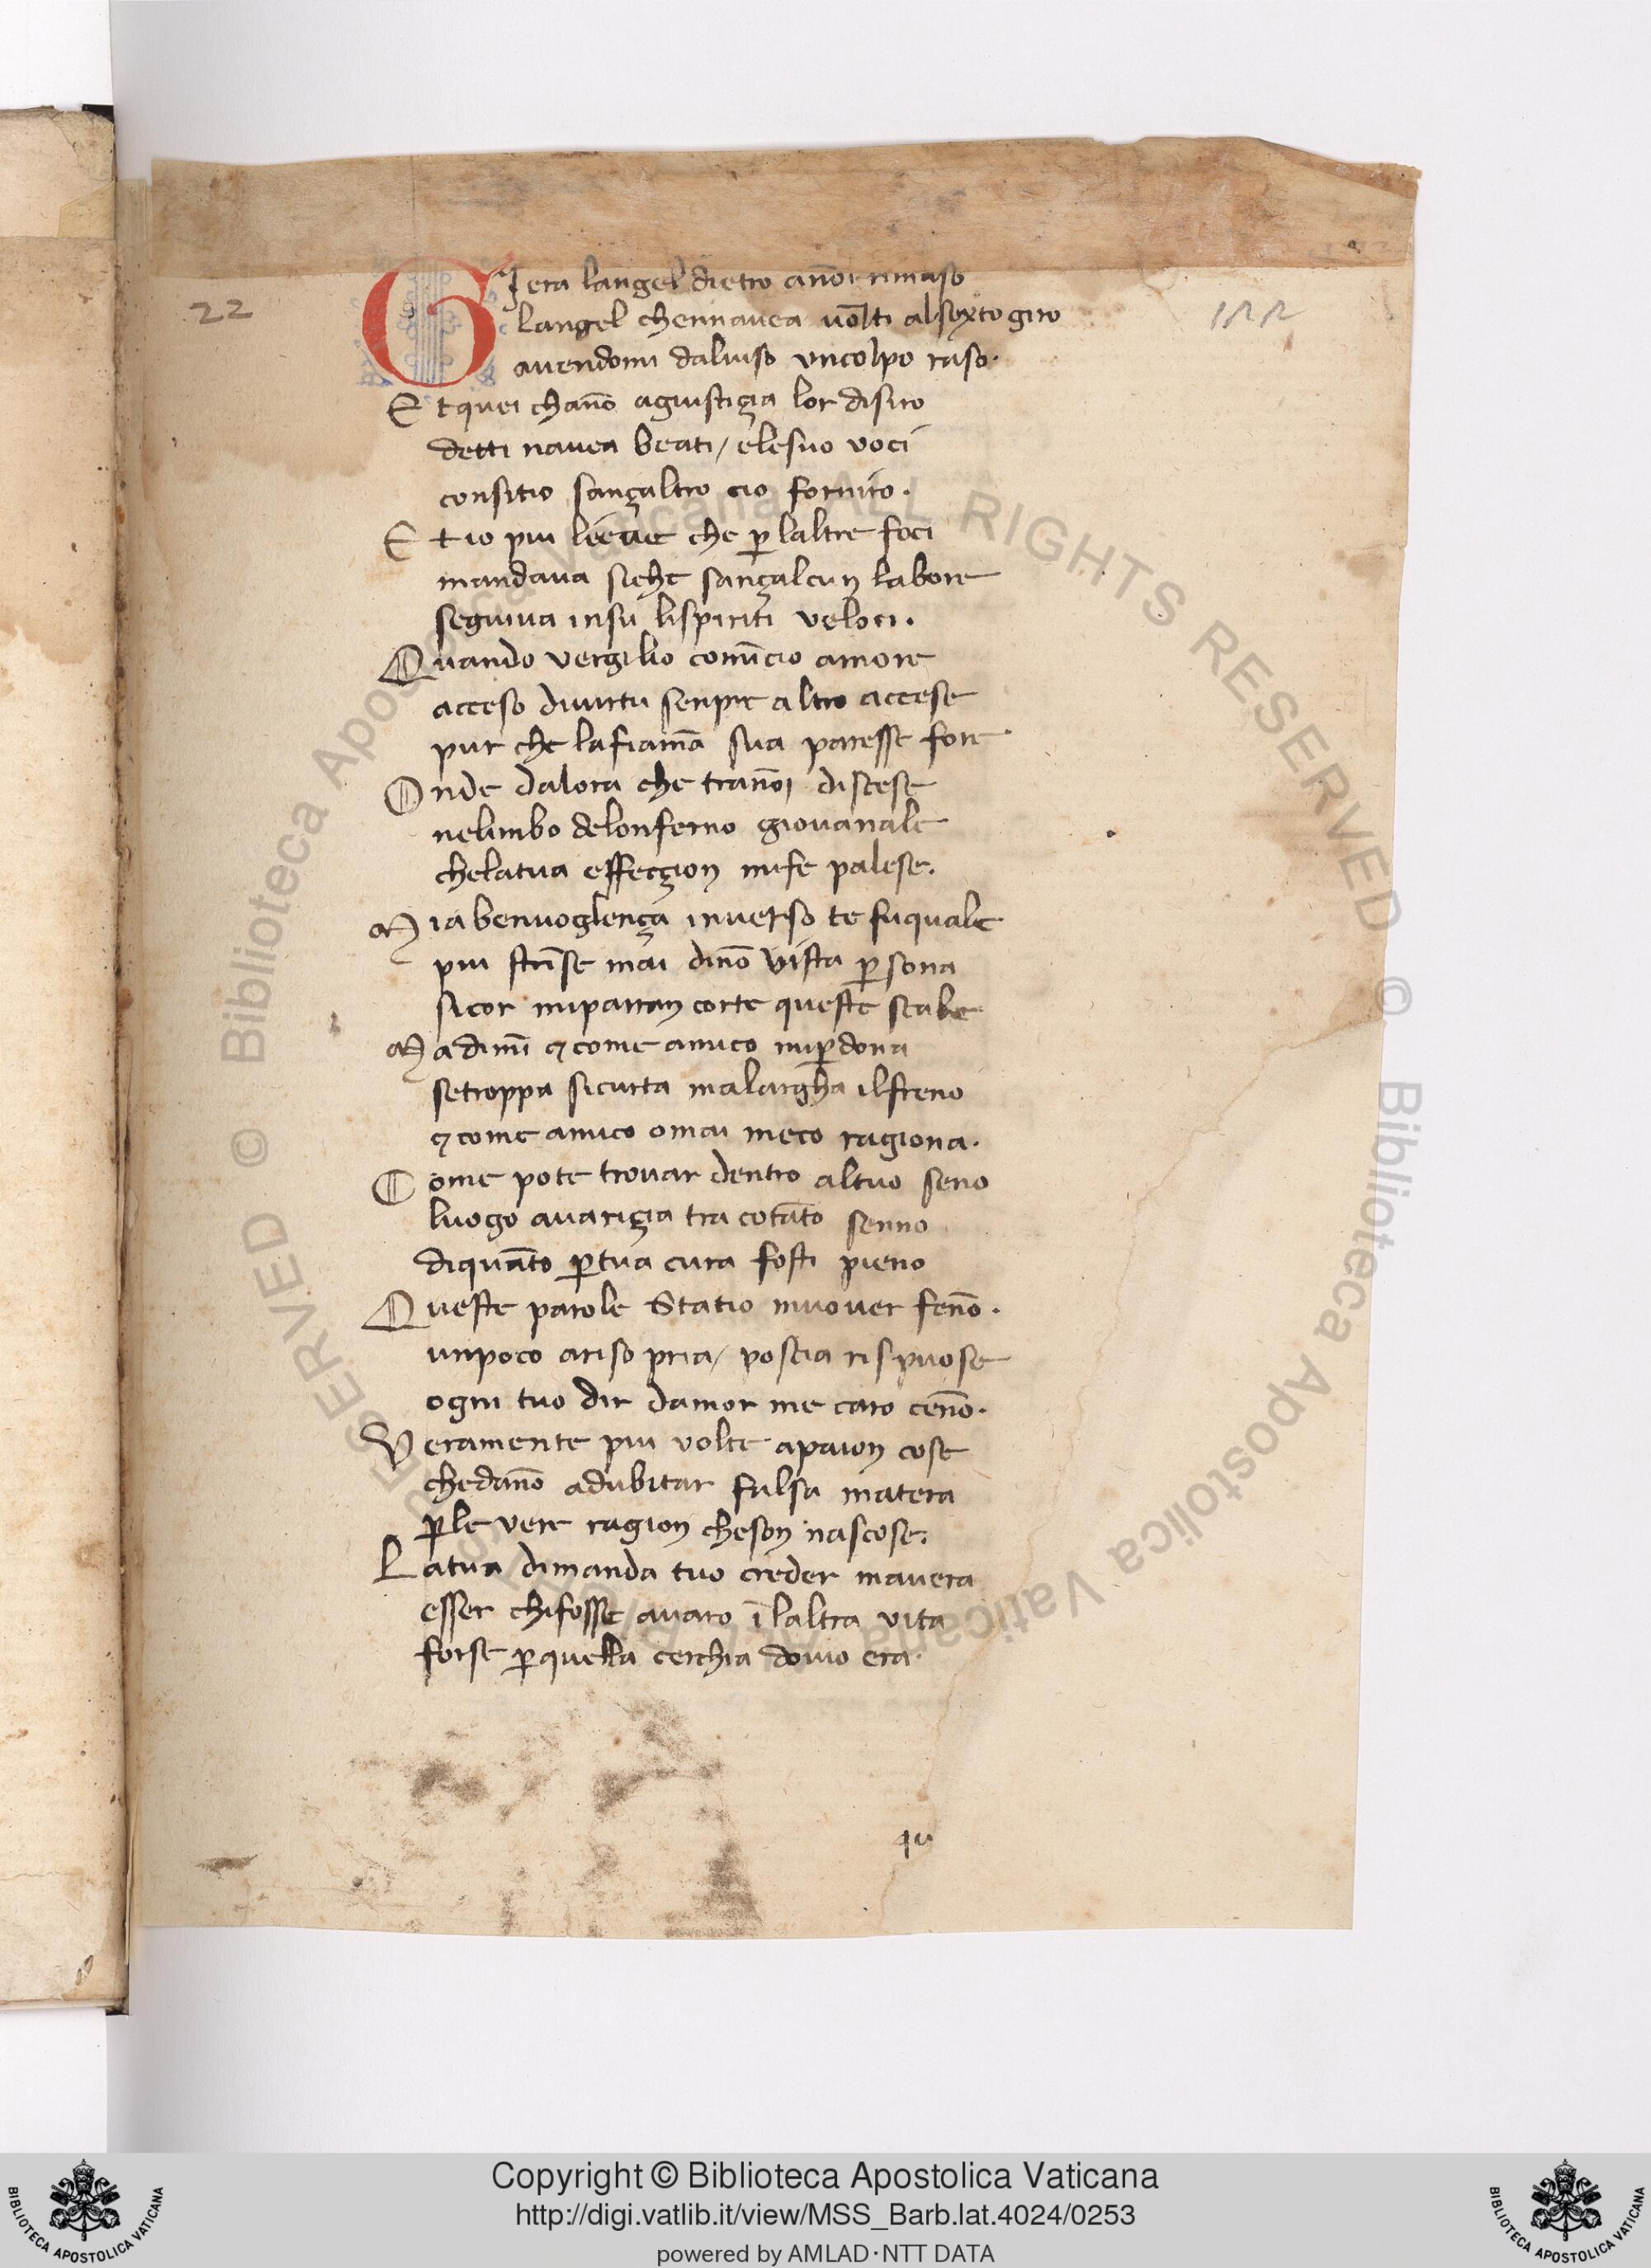 22
122
GJera langel dietro anōi rimaso
langel chennavea vōlti alsexto giro
avendomi dalviso uncolpo raso.
Et quei chanō agiustiçia lor disiro
detti navea beati / elesuo voci
consitio sançaltro cio forniro.
Et io piu lieve che p̱ laltre foci
mandava siche sançalcun labore
seguiva insu lispiriti veloci.
Quando vergilio comīcio amore
acceso divirtu senpre altro accese
pur che lafiamā sua paresse fore
Onde dalora che tranōi discese
nelimbo delonferno giovanale
chelatua effecçion mife palese.
Mia benvoglença inverso te fuquale
piu strīse mai dinō vista p̱sona
sicor miparran corte queste scale
Ma dimī ⁊ come amico mip̱dona
setroppa sicurta malargha ilfreno
⁊ come amico omai meco ragiona.
Come pote trovar dentro altuo seno
luogo avariçia tra cotāto senno
diquāto p̱tua cura fosti pieno
Queste parole Statio muover fenō.
unpoco ariso pria / poscia rispuose
ogni tuo dir damor me caro cenō.
Veramente piu volte apaion cose
chedanō adubitar falsa matera
p̱le vere ragion cheson nascose.
Latua dimanda tuo creder mavera
esser chifosse avaro ī laltra vita
forse p̱quella cerchia dovio era.
qu
Biblioteca Apostolica Vaticana ALL RIGHTS RESERVED © Biblioteca Apostolica Vaticana ALL RIGHTS RESERVED ©
Copyright © Biblioteca Apostolica Vaticana
http://digi.vatlib.it/view/MSS_Barb.lat.4024/0253
powered by AMLAD·NTT DATA
BIBLIOTECA APOSTOLICA VATICANA
BIBLIOTECA APOSTOLICA VATICANA